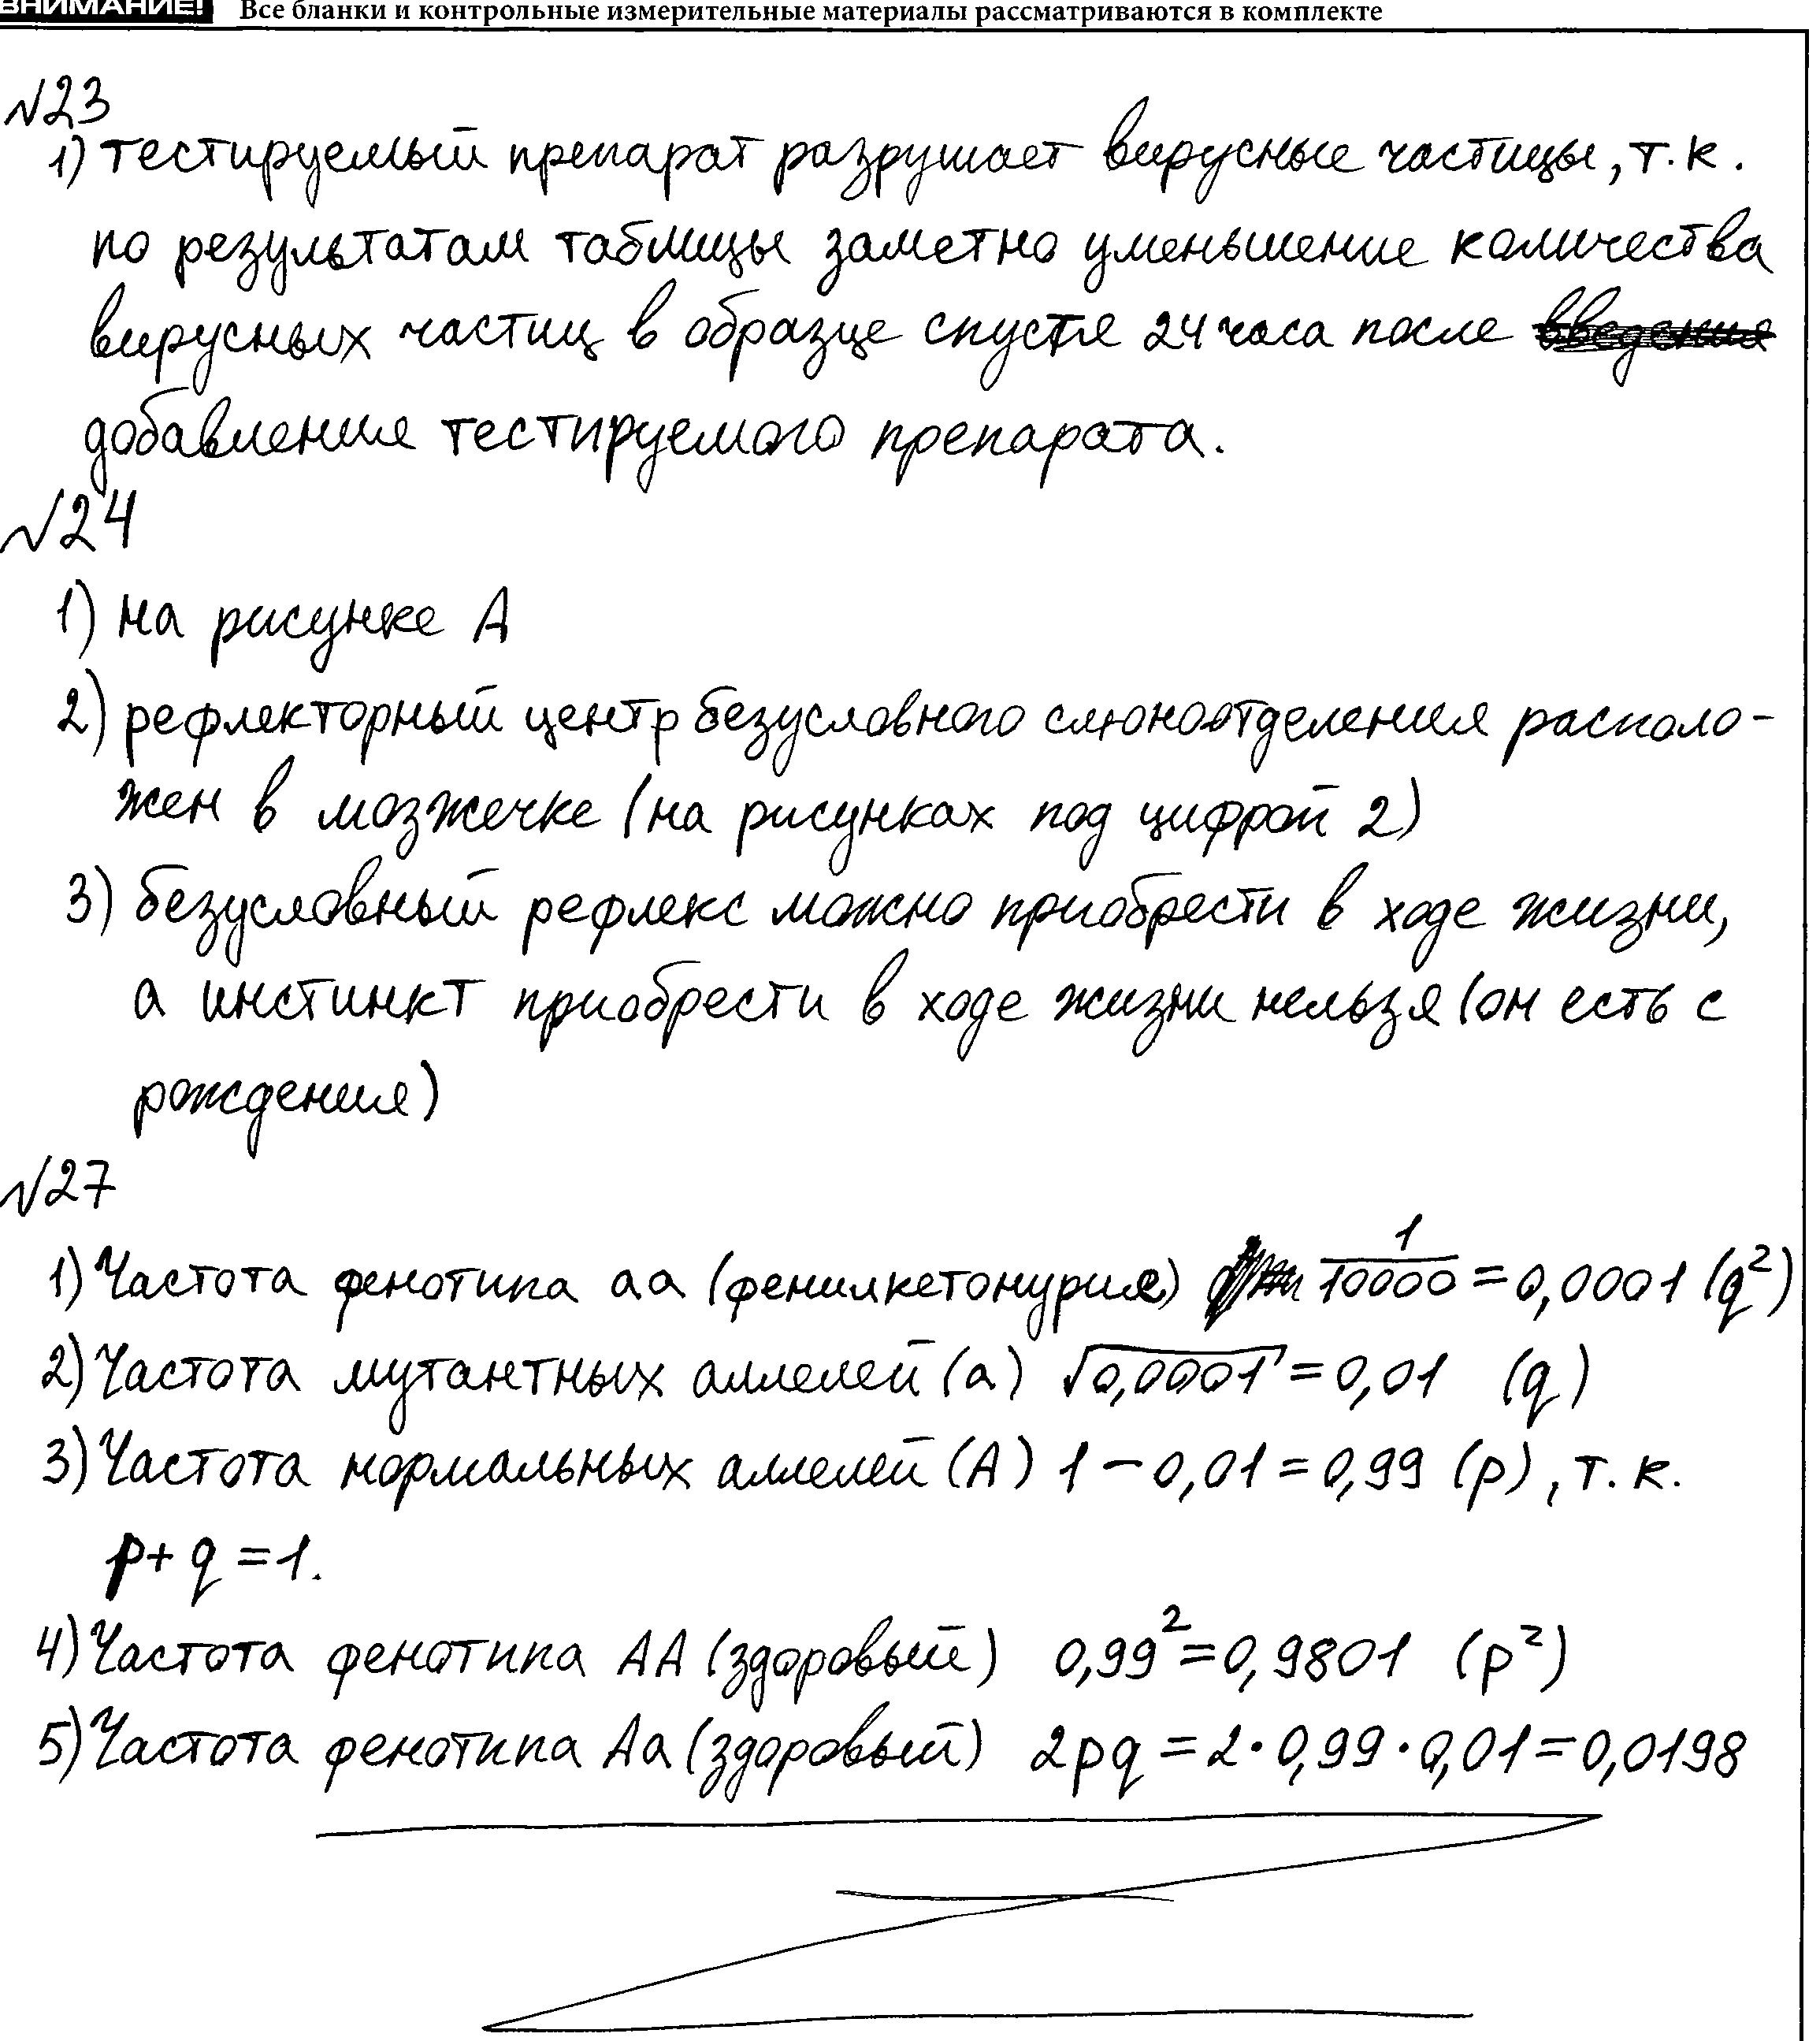 ВНИМАНИЕ! Все бланки и контрольные измерительные материалы рассматриваются в комплекте
№23
1) тестируемый препарат разрушает вирусные частицы, т.к.
по результатам таблицы заметно уменьшение количества
вирусных частиц в образце спустя 24 часа после введения
добавления тестируемого препарата.
№24
1) на рисунке А
2) рефлекторный центр безусловного слюноотделения располо-
жен в мозжечке (на рисунках под цифрой 2)
3) безусловный рефлекс можно приобрести в ходе жизни,
а инстинкт приобрести в ходе жизни нельзя (он есть с
рождения)
№27
1) Частота фенотипа аа (фенилкетонурия) 1/10000 = 0,0001 (q²)
2) Частота мутантных аллелей (а) √0,0001 = 0,01 (q)
3) Частота нормальных аллелей (А) 1 – 0,01 = 0,99 (p), т.к.
p + q = 1.
4) Частота фенотипа АА (здоровый) 0,99² = 0,9801 (p²)
5) Частота фенотипа Аа (здоровый) 2pq = 2 · 0,99 · 0,01 = 0,0198